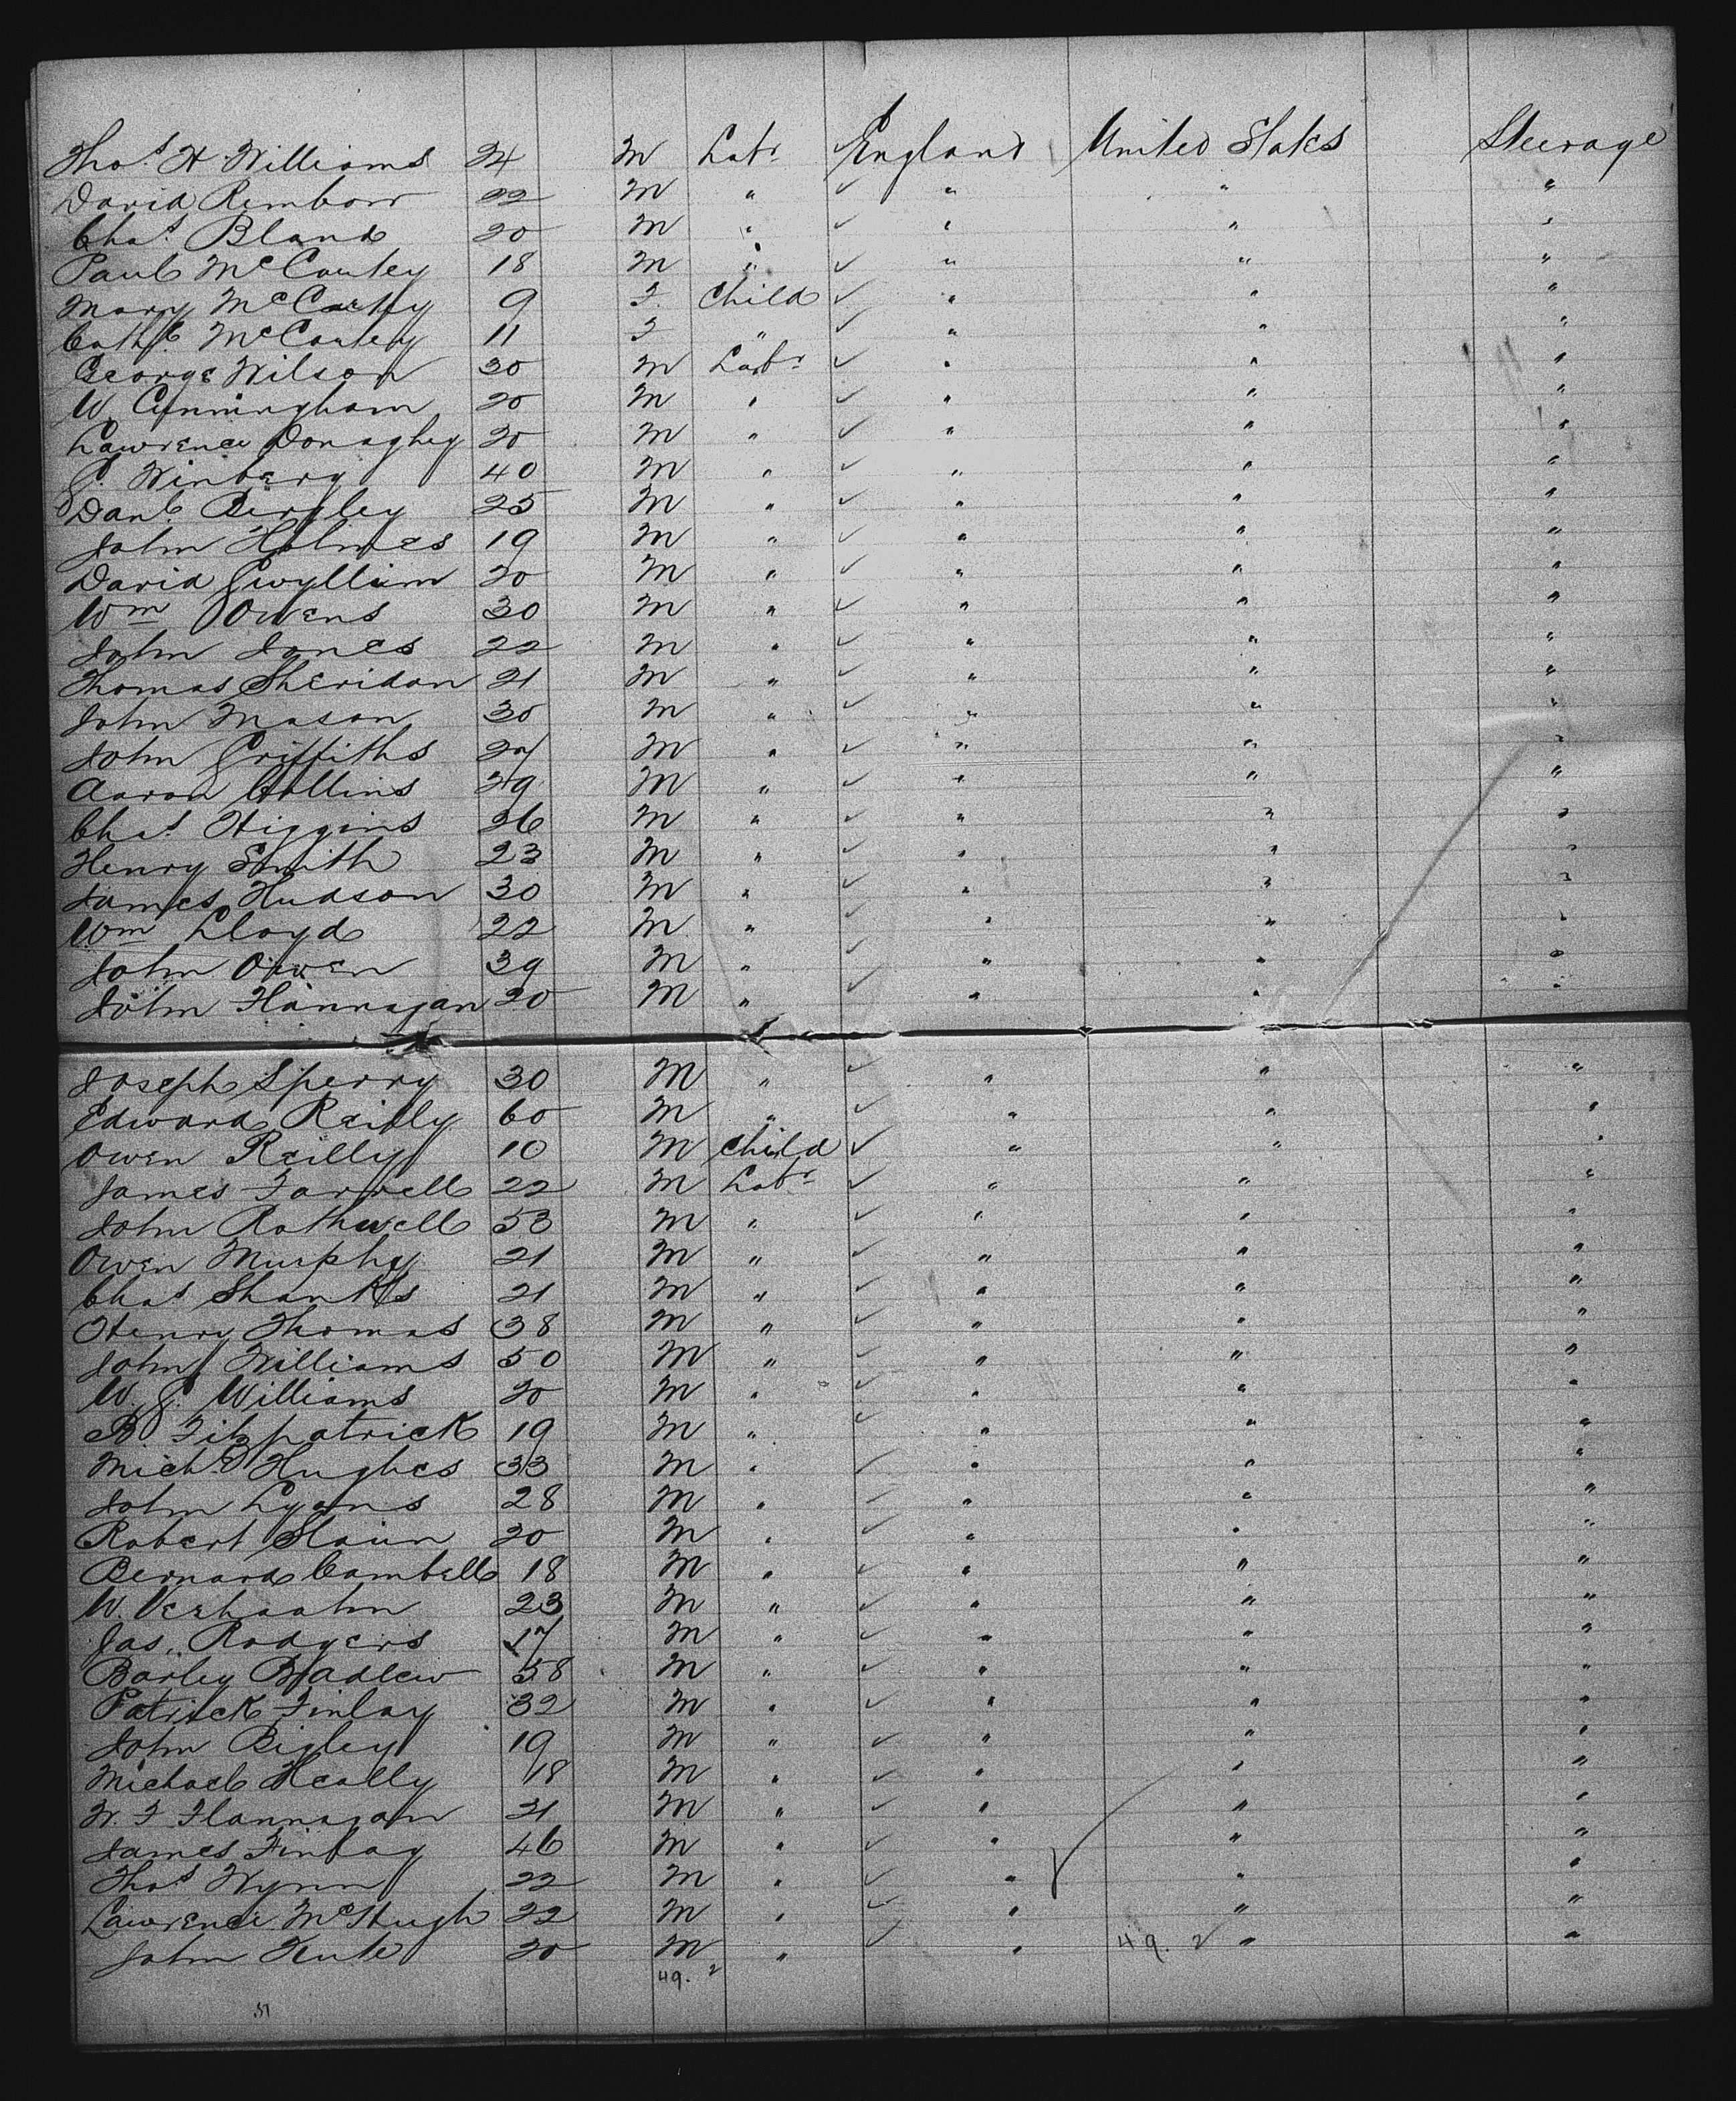 Thos. H. Williams 24 M Labr England United States Steerage
David Rembow 22 M " " " "
Chas. Bland 20 M " " " "
Paul McCauley 18 M " " " "
Mary McCauley 9 F. Child " " "
Cathe. McCauley 11 F " " " "
George Wilson 30 M Labr " " "
W. Cunningham 20 M " " " "
Lawrence Donaghey 20 M " " " "
G. Winberg 40 M " " " "
Danl. Bergley 25 M " " " "
John Holmes 19 M " " " "
David Gwyllim 20 M " " " "
Wm Owens 30 M " " " "
John Jones 22 M " " " "
Thomas Sheridan 21 M " " " "
John Mason 30 M " " " "
John Griffiths 27 M " " " "
Aaron Collins 29 M " " " "
Chas. Higgins 26 M " " " "
Henry Smith 23 M " " " "
James Hudson 30 M " " " "
Wm Lloyd 22 M " " " "
John Owen 39 M " " " "
John Flannagan 20 M " " " "
Joseph Sperry 30 M " " " "
Edward Reilly 60 M " " " "
Owen Reilly 10 M Child " " "
James Farrell 22 M Labr " " "
John Rothwell 53 M " " " "
Owen Murphy 21 M " " " "
Chas. Shanks 21 M " " " "
Henry Thomas 38 M " " " "
John Williams 50 M " " " "
W. G. Williams 20 M " " " "
B. Fitzpatrick 19 M " " " "
Michl. Hughes 33 M " " " "
John Lyons 28 M " " " "
Robert Slaun 20 M " " " "
Bernard Cambell 18 M " " " "
W. Verhaahn 23 M " " " "
Jas. Rodgers 17 M " " " "
Barley Badlew 58 M " " " "
Patrick Finlay 32 M " " " "
John Bigley 19 M " " " "
Michael Heally 18 M " " " "
W. F Flannagan 21 M " " " "
James Finlay 46 M " " " "
Thos Wynn 22 M " " " "
Lawrence McHugh 22 M " " " "
John Kute 20 M " " 49. 2 " "
49. 2
51